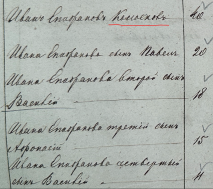 Иванъ Спафановъ Колосковъ 40
Ивана Спафанова сынъ Павелъ 20
Ивана Спафанова второй сынъ
Василій 18
Ивана Спафанова третий сынъ
Афонасій 15
Ивана Спафанова четвертый
сынъ Василій 11